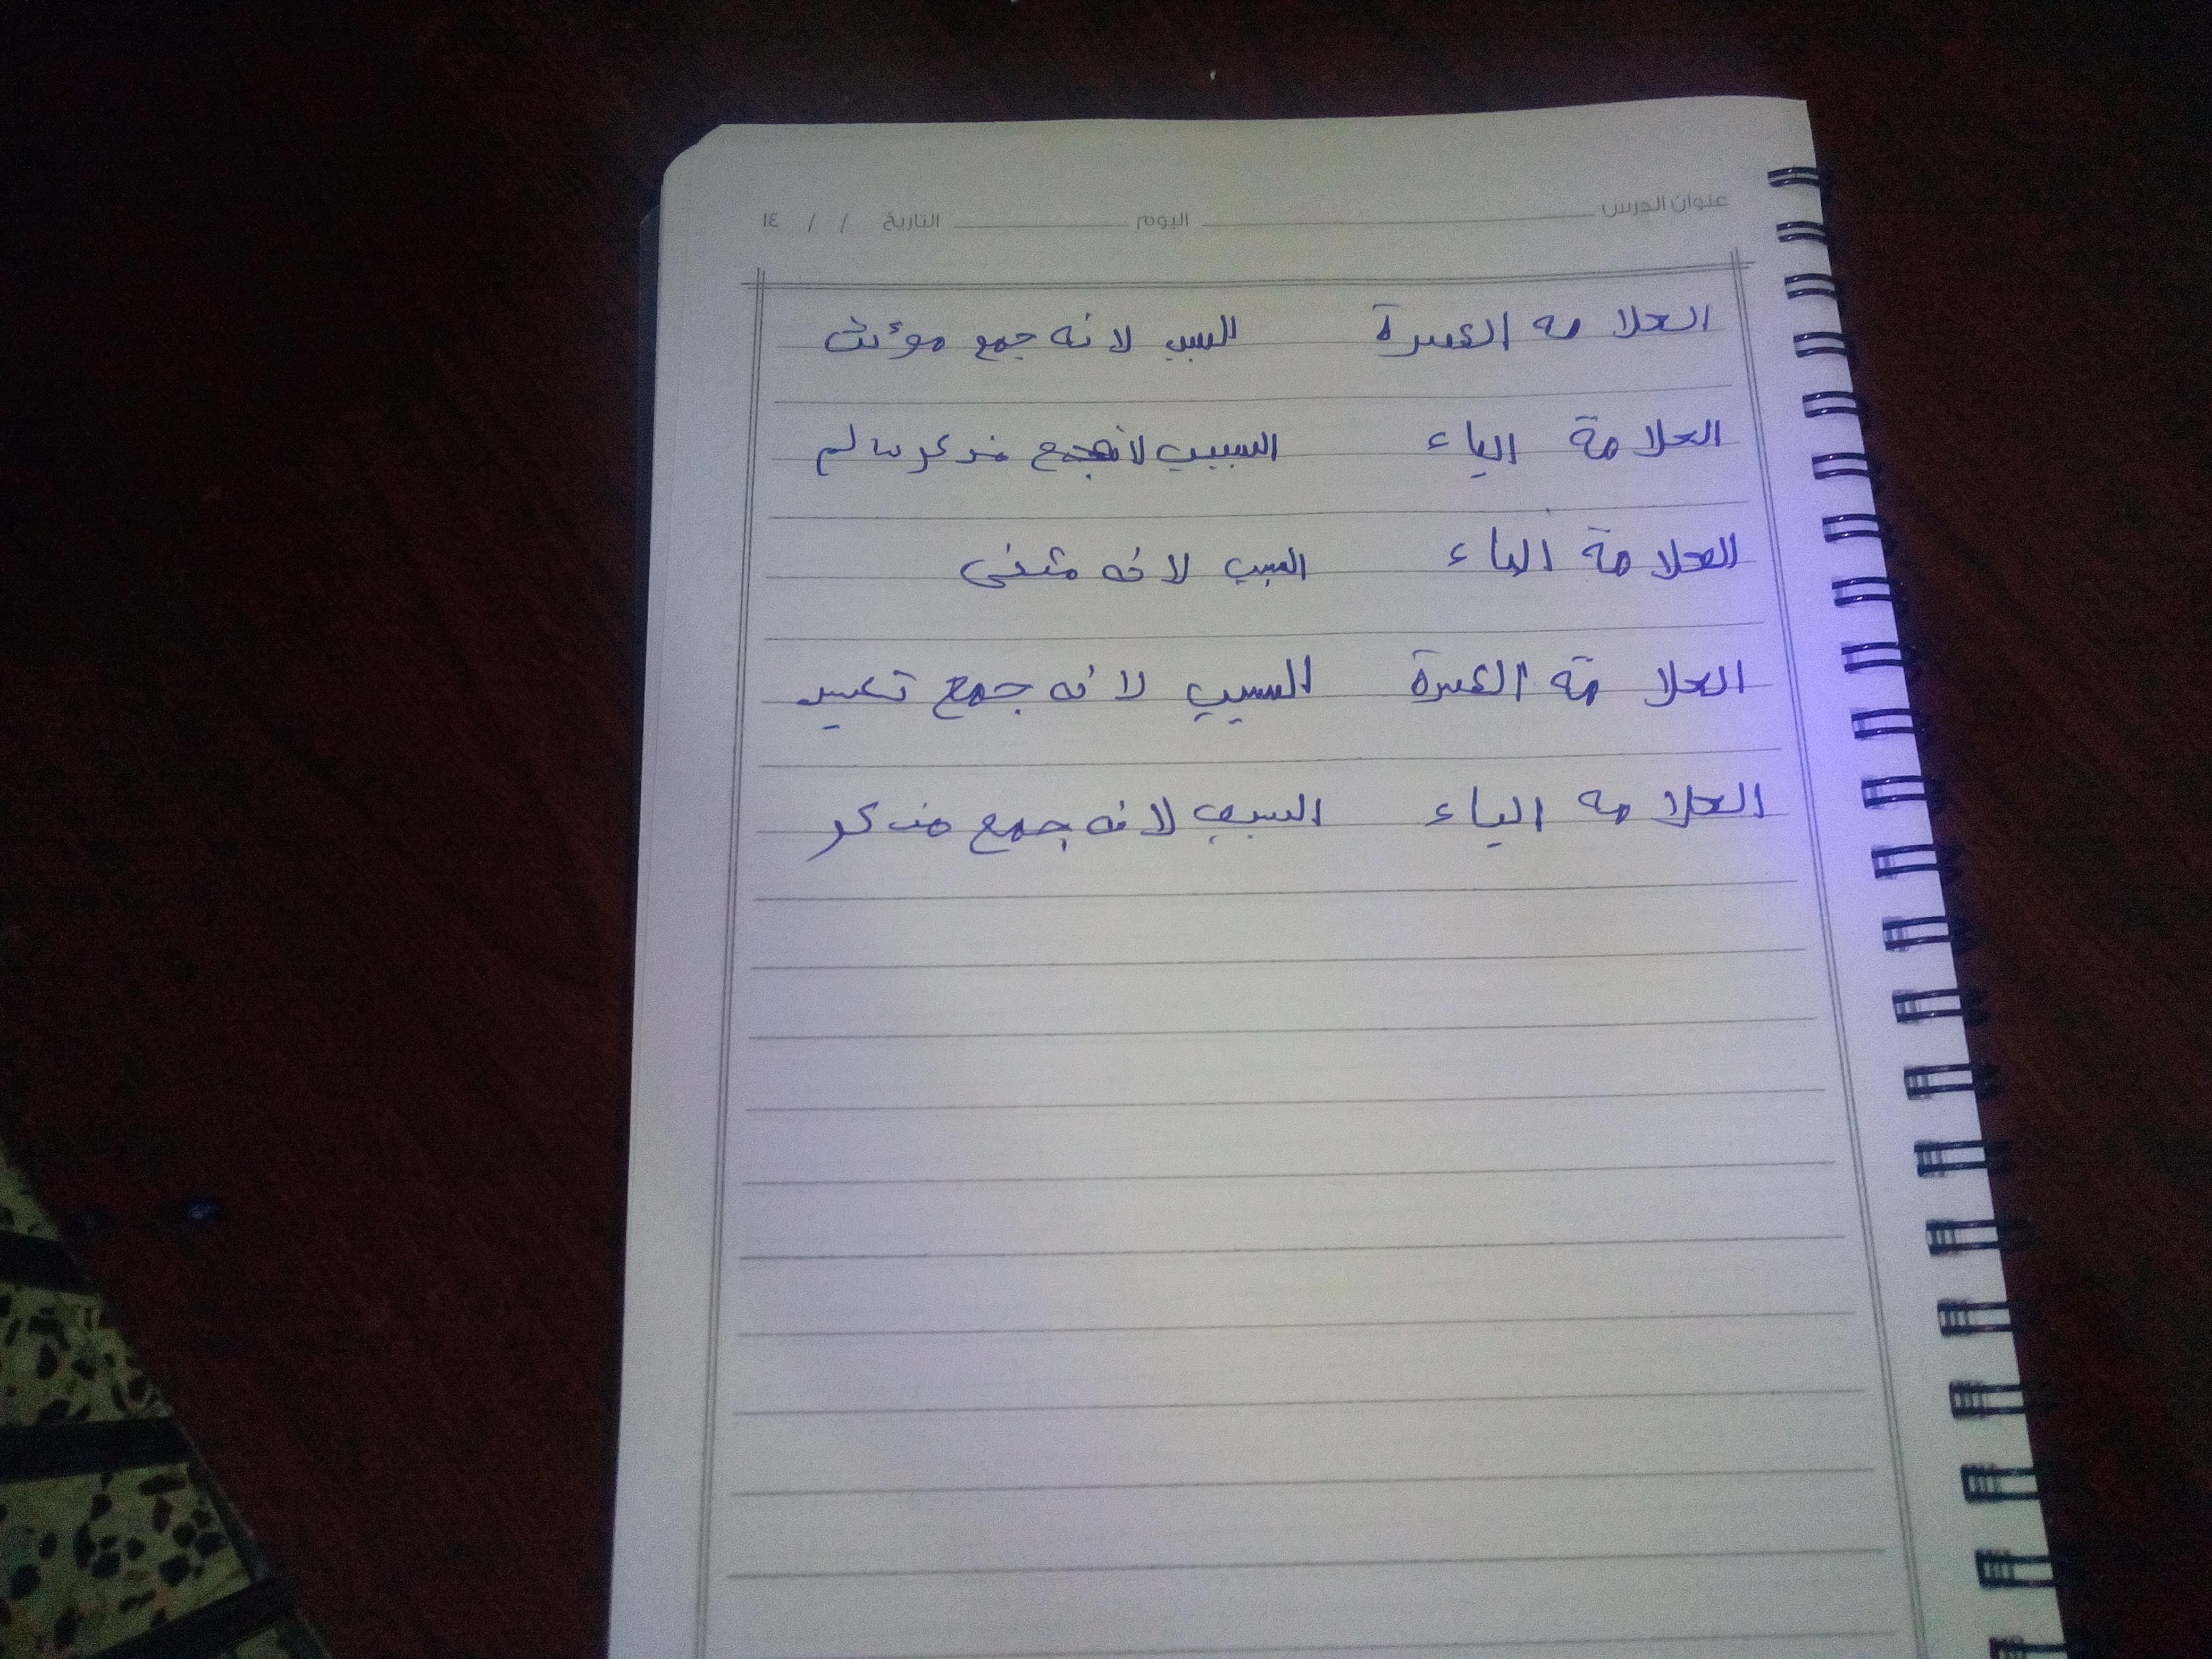 عنوان الدرس اليوم التاريخ / / ١٤
العلامه الكسرة السبب لانه جمع مؤنث
العلامة الياء السبب لانه جمع مذكر سالم
العلامة الياء السبب لانه مثنى
العلامة الكسرة السبب لانه جمع تكسير
العلامه الياء السبب لانه جمع مذكر